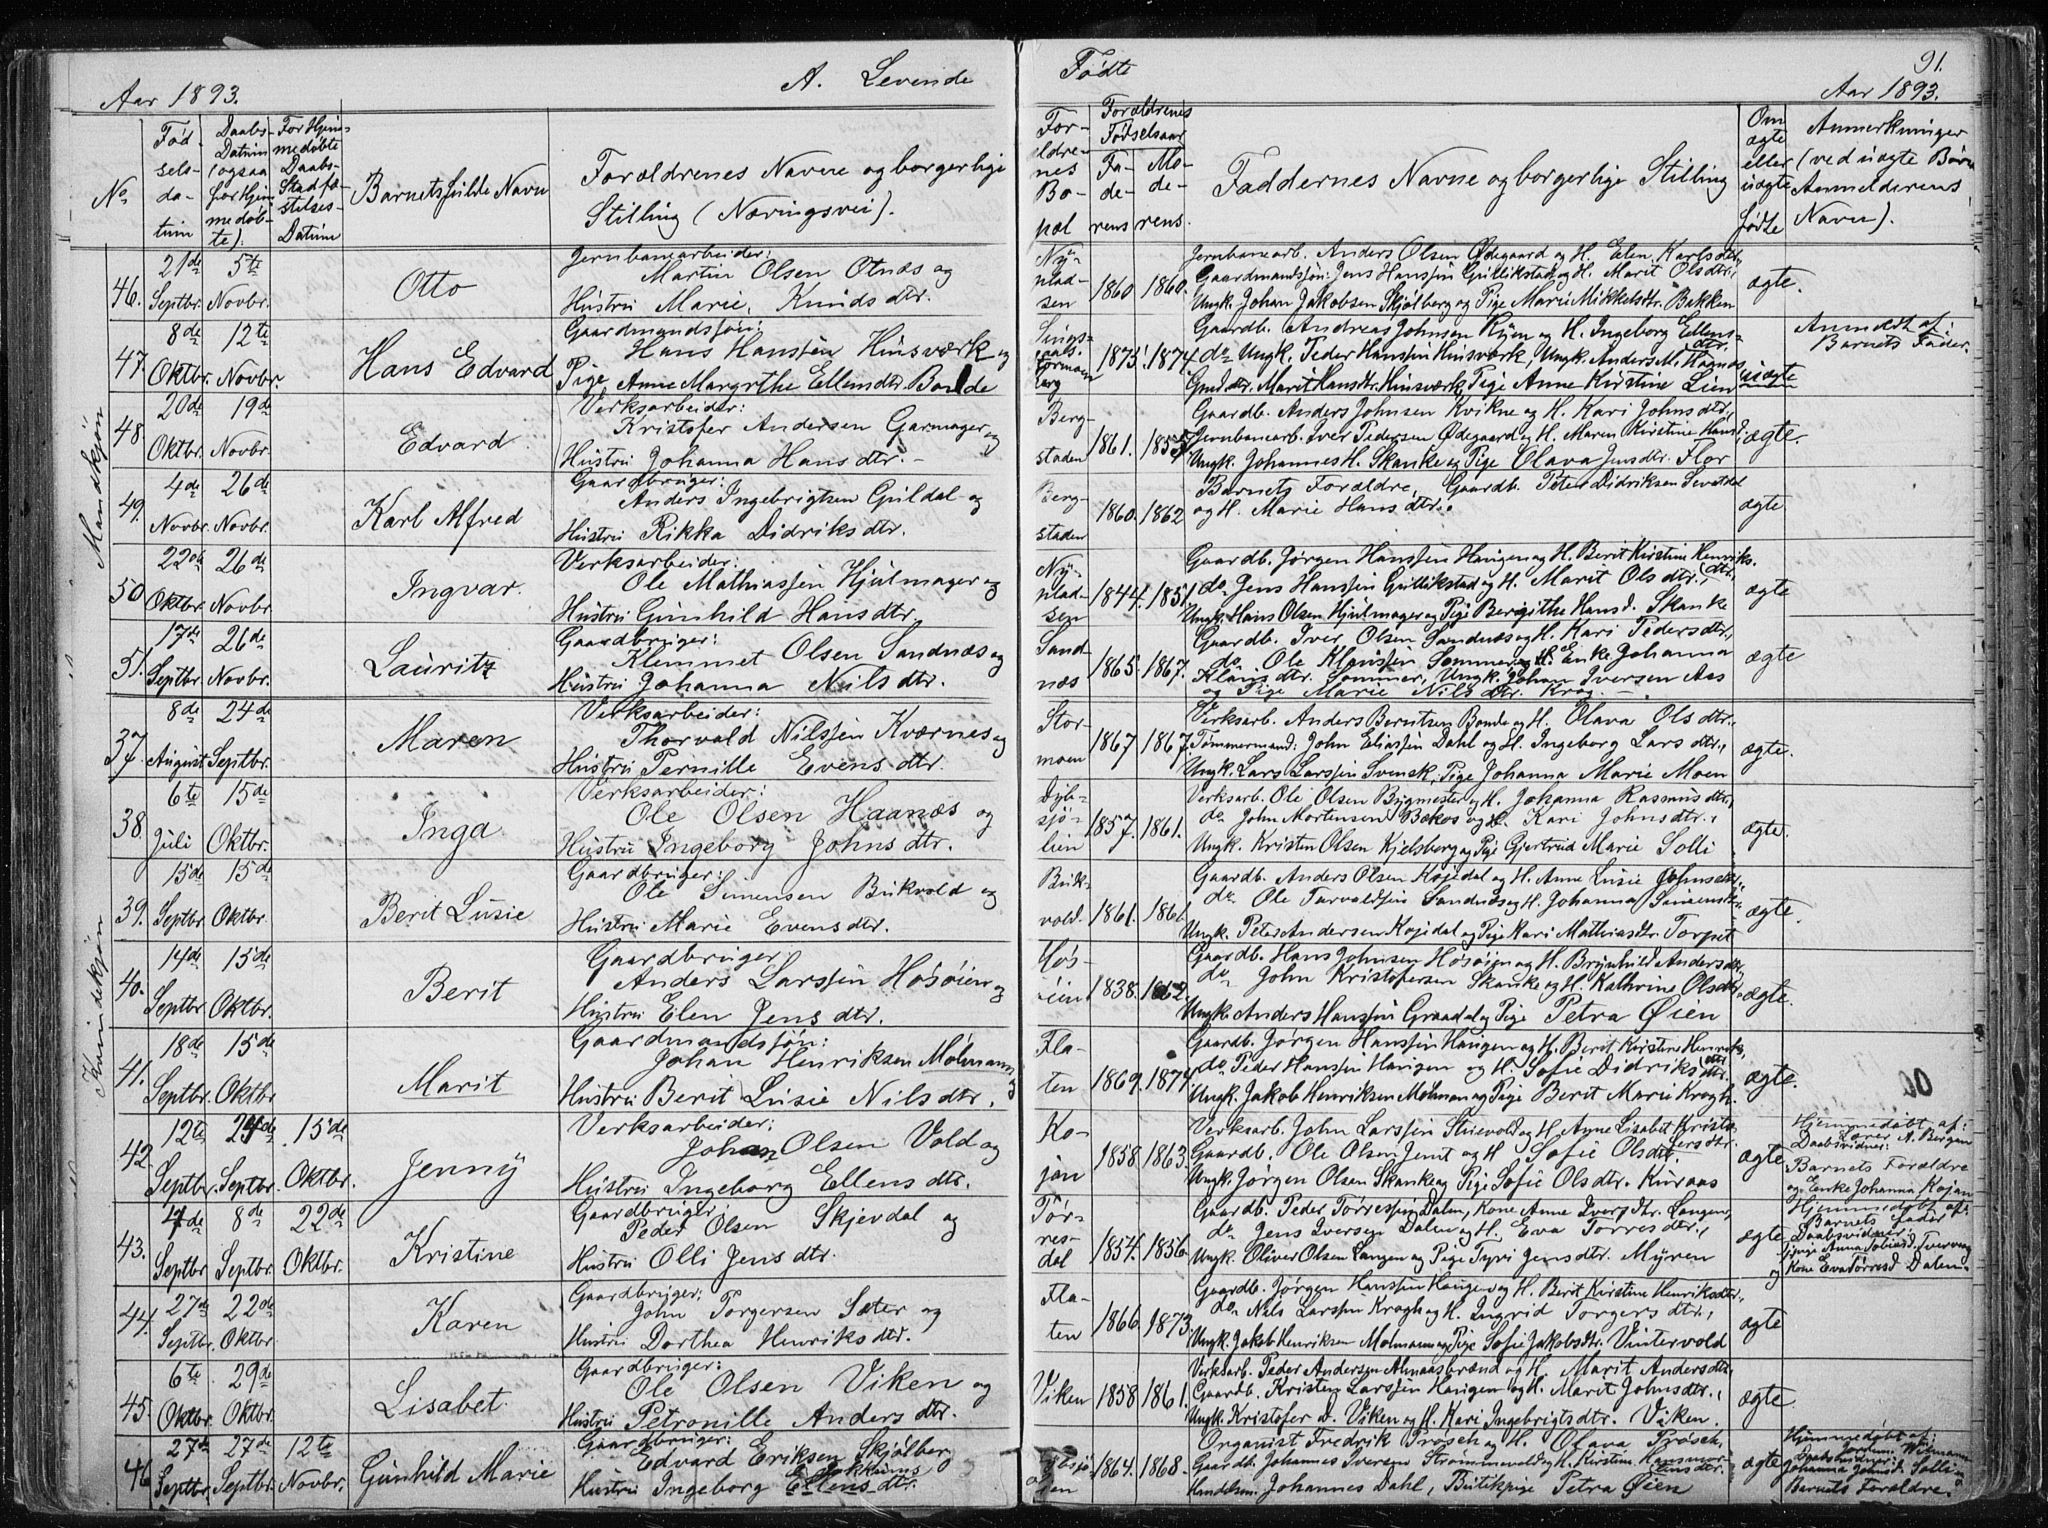 Aar 1893.
A. Levende
Fødte
91.
Aar 1893.
No
Fødselsdatum
Daabs-Datum (ogsaa for Hjemmedøbte).
For Hjemmedøbte Daabs-Stadfæstelses-Datum
Barnets fulde Navn
Forældrenes Navne og borgerlige
Stilling (Næringsvei).
Forældrenes Bopæl
Forældrenes Fødselsaar
Faderens
Moderens.
Faddernes Navne og borgerlige Stilling
Om ægte eller uægte fødte
Anmerkninger
(ved uægte Børn
Anmelderens
Navn).
Mandkjøn
46. 21de Septbr. 5te Novbr. Otto
Jernbanearbeider:
Martin Olsen Otnæs og
Hustru Marie Knudsdtr.
Nypladsen 1860 1860.
Jernbanearb. Anders Olsen Ødegaard og H. Elen Karlsdtr,
Gaardmandssøn: Jens Hanssen Gullikstad og H. Marit Olsdtr,
Ungk. Johan Jakobsen Skjølberg og Pige Marie Mikkelsdtr. Bakken
ægte.
47. 8de Oktbr. 12te Novbr. Hans Edvard
Gaardmandssøn:
Hans Hanssen Husværk og
Pige Anne Margrthe Ellensdtr. Bonde
1873. 1874.
Gaardb. Andreas Johnsen Ryen og H. Ingeborg Ellensdtr.
do Ungk. Peder Hanssen Husværk, Ungk. Anders M. Haanæs
Gmd.dtr. Marit Hansdtr. Husværk, Pige Anne Kirstine Lien
uægte
Anmeldt af
Barnets Fader.
48. 20de Oktbr. 19de Novbr. Edvard
Verksarbeider:
Kristofer Andersen Garmager og
Hustru Johanna Hansdtr.
Bergstaden 1861. 1855
Gaardb. Anders Johnsen Kvikne og H. Kari Johnsdtr,
Jernbanearb. Iver Pedersen Ødegaard og H. Maren Kirstine Hansd.
Ungk. Johannes H. Skanke og Pige Olava Jensdtr. Flor
ægte.
49. 4de Novbr. 26de Novbr. Karl Alfred
Gaardbruger:
Anders Ingebrigtsen Guldal og
Hustru Rikka Didriksdtr.
Bergstaden 1860. 1862
Barnets Forældre, Gaardb. Peter Didriksen
og H. Marie Hansdtr.
ægte
50. 22de Oktbr. 26de Novbr. Ingvar.
Verksarbeider:
Ole Mathiassen Hjulmager og
Hustru Gunhild Hansdtr.
Nypladsen 1844. 1851.
Gaardb. Jørgen Hanssen Haugen og H. Berit Kirstine Henriksdtr,
do Jens Hanssen Gullikstad og H. Marit Olsdtr.,
Ungk. Hans Olsen Hjulmager og Pige Bergithe Hansd. Skanke
ægte
51. 17de Septbr. 26de Novbr. Lauritz
Gaardbruger:
Klemmet Olsen Sandnæs og
Hustru Johanna Nilsdtr.
Sandnæs 1865. 1867.
Gaardb. Iver Olsen Sandnæs og H. Kari Pedersdtr,
do Ole Klausen Sommer, Enke Johanna
Klausdtr. Sommer, Ungk. Johan Iversen Aas
og Pige Marie Nilsdtr. Krog.
ægte
Kvindekjøn
37. 8de August 24de Septbr. Maren
Verksarbeider:
Thorvald Nilssen Kværnes og
Hustru Pernille Evensdtr.
Stormoen 1867 1867.
Verksarb. Anders Berntsen Bonde og H. Olava Olsdtr.
Tømmermand: John Eliassen Dahl og H. Ingeborg Larsdtr.,
Ungk. Lars Larssen Svensk, Pige Johanna Marie Moen
ægte.
38. 6te Juli 15de Oktbr. Inga
Verksarbeider:
Ole Olsen Haanæs og
Hustru Ingeborg Johnsdtr.
Djupsjølien 1857. 1861.
Verksarb. Ole Olsen Bygmester og H. Johanna Rasmusdtr,
do John Mortensen Bækos og H. Kari Johnsdtr.,
Ungk. Kristen Olsen Kjelsberg og Pige Gjertrud Marie Solli
ægte.
39. 15de Septbr. 15de Oktbr. Berit Lusie
Gaardbruger:
Ole Simensen Bukvold og
Hustru Marie Evensdtr.
Bukvold. 1861. 1861
Gaardb. Anders Olsen Kojedal og H. Anne Lusie Johnsdtr.,
do Ole Torvaldsen Sandnæs og H. Johanna Simensdtr.
Ungk. Peter Andersen Kojedal og Pige Kari Mathiasdtr. Torpet
ægte.
40. 14de Septbr. 15de Oktbr. Berit
Gaardbruger
Anders Larssen Høsøien og
Hustru Elen Jensdtr.
Høsøien 1838. 1862.
Gaardb. Hans Johnsen Høsøien og H. Brynhild Andersdtr,
do John Kristofersen Skanke og H. Kathrine Olsdtr.
Ungk. Anders Hanssen Graadal og Pige Petra Øien
ægte.
41. 18de Septbr. 15de Oktbr. Marit
Gaardmandssøn:
Johan Henriksen Molmann og
Hustru Berit Lusie Nilsdtr.
Flaten 1869. 1874.
Gaardb. Jørgen Hanssen Haugen og H. Berit Kirstine Henriksdtr,
do Peder Hanssen Haugen og H. Sofie Didriksdtr.
Ungk. Jakob Henriksen Molman og Pige Berit Marie Kragh.
ægte.
42. 12te Septbr. 24de Septbr. 15de Oktbr. Jenny
Verksarbeider:
Johan Olsen Vold og
Hustru Ingeborg Ellensdtr.
Kojan 1858. 1863.
Verksarb. John Larssen Stuevold og H. Anne Lisabet Kristofersdtr.
Gaardb. Ole Olsen Jemt og H. Sofie Olsdtr.
Ungk. Jørgen Olsen Skanke og Pige Sofie Olsdtr. Kuraas
ægte
Hjemmedøbt af:
Lærer A. Bergan
Daabsvidner:
Barnets Forældre
og Enke Johanna Kojan
43. Septbr. 8de Septbr. 22de Oktbr. Kristine
Gaardbruger
Peder Olsen Skjevdal og
Hustru Olli Jensdtr.
Tørresdal 1857. 1856
Gaardb. Peder Tørressen Dalen, Kone Anne Iversdtr. Langen,
do Jens Iversen Dalen og H. Eva Torresdtr.,
Ungk. Oliver Olsen Langen og Pige Guri Jensdtr. Myren
ægte
Hjemmedøbt af:
Barnets fader
Daabsvidner:
Pige Anna Tobiasd. Tverv
og Kone Eva Tørresd. Dalen
44. 27de Septbr. 22de Oktbr. Karen
Gaardbruger:
John Torgersen Sæter og
Hustru Dorthea Henriksdtr.
Flaten 1866 1873
Gaardb. Jørgen Hanssen Haugen og H. Berit Kirstine Henriksdtr.,
do Nils Larssen Kragh og H. Ingrid Torgersdtr.,
Ungk. Jakob Henriksen Molmann og Pige Sofie Jakobsdtr. Vintervold
ægte
45. 6te Oktbr. 29de Oktbr. Lisabet.
Gaardbruger:
Ole Olsen Viken og
Hustru Petronille Andersdtr.
Viken 1858 1861.
Verksarb. Peder Andersen Almaasbrænd og H. Marit Andersdtr.
Gaardb. Kristen Larssen Haugen og H. Marit Johnsdtr.,
Ungk. Kristofer O. Viken og H. Kari Ingebrigtsdtr. Viken.
ægte.
46 27de Septbr. 27de Septbr. 12te Novbr. Gunhild Marie
Gaardbruger:
Edvard Eriksen Skjølberg
Hustru Ingeborg Ellensdtr.
1864. 1868.
Organist Fredrik Prøsch og H. Olava Prøsch,
Gaardb. Johannes Iversen Strømmevold og H. Kirstine Hansmoensdtr.
Handelsm. Johannes Dahl, Butikpige Petra Øien
ægte
Hjemmedøbt af:
Jordm. Wilmann
Daabsvidner:
Johanna Johnsd. Solli og
Barnets Forældre.